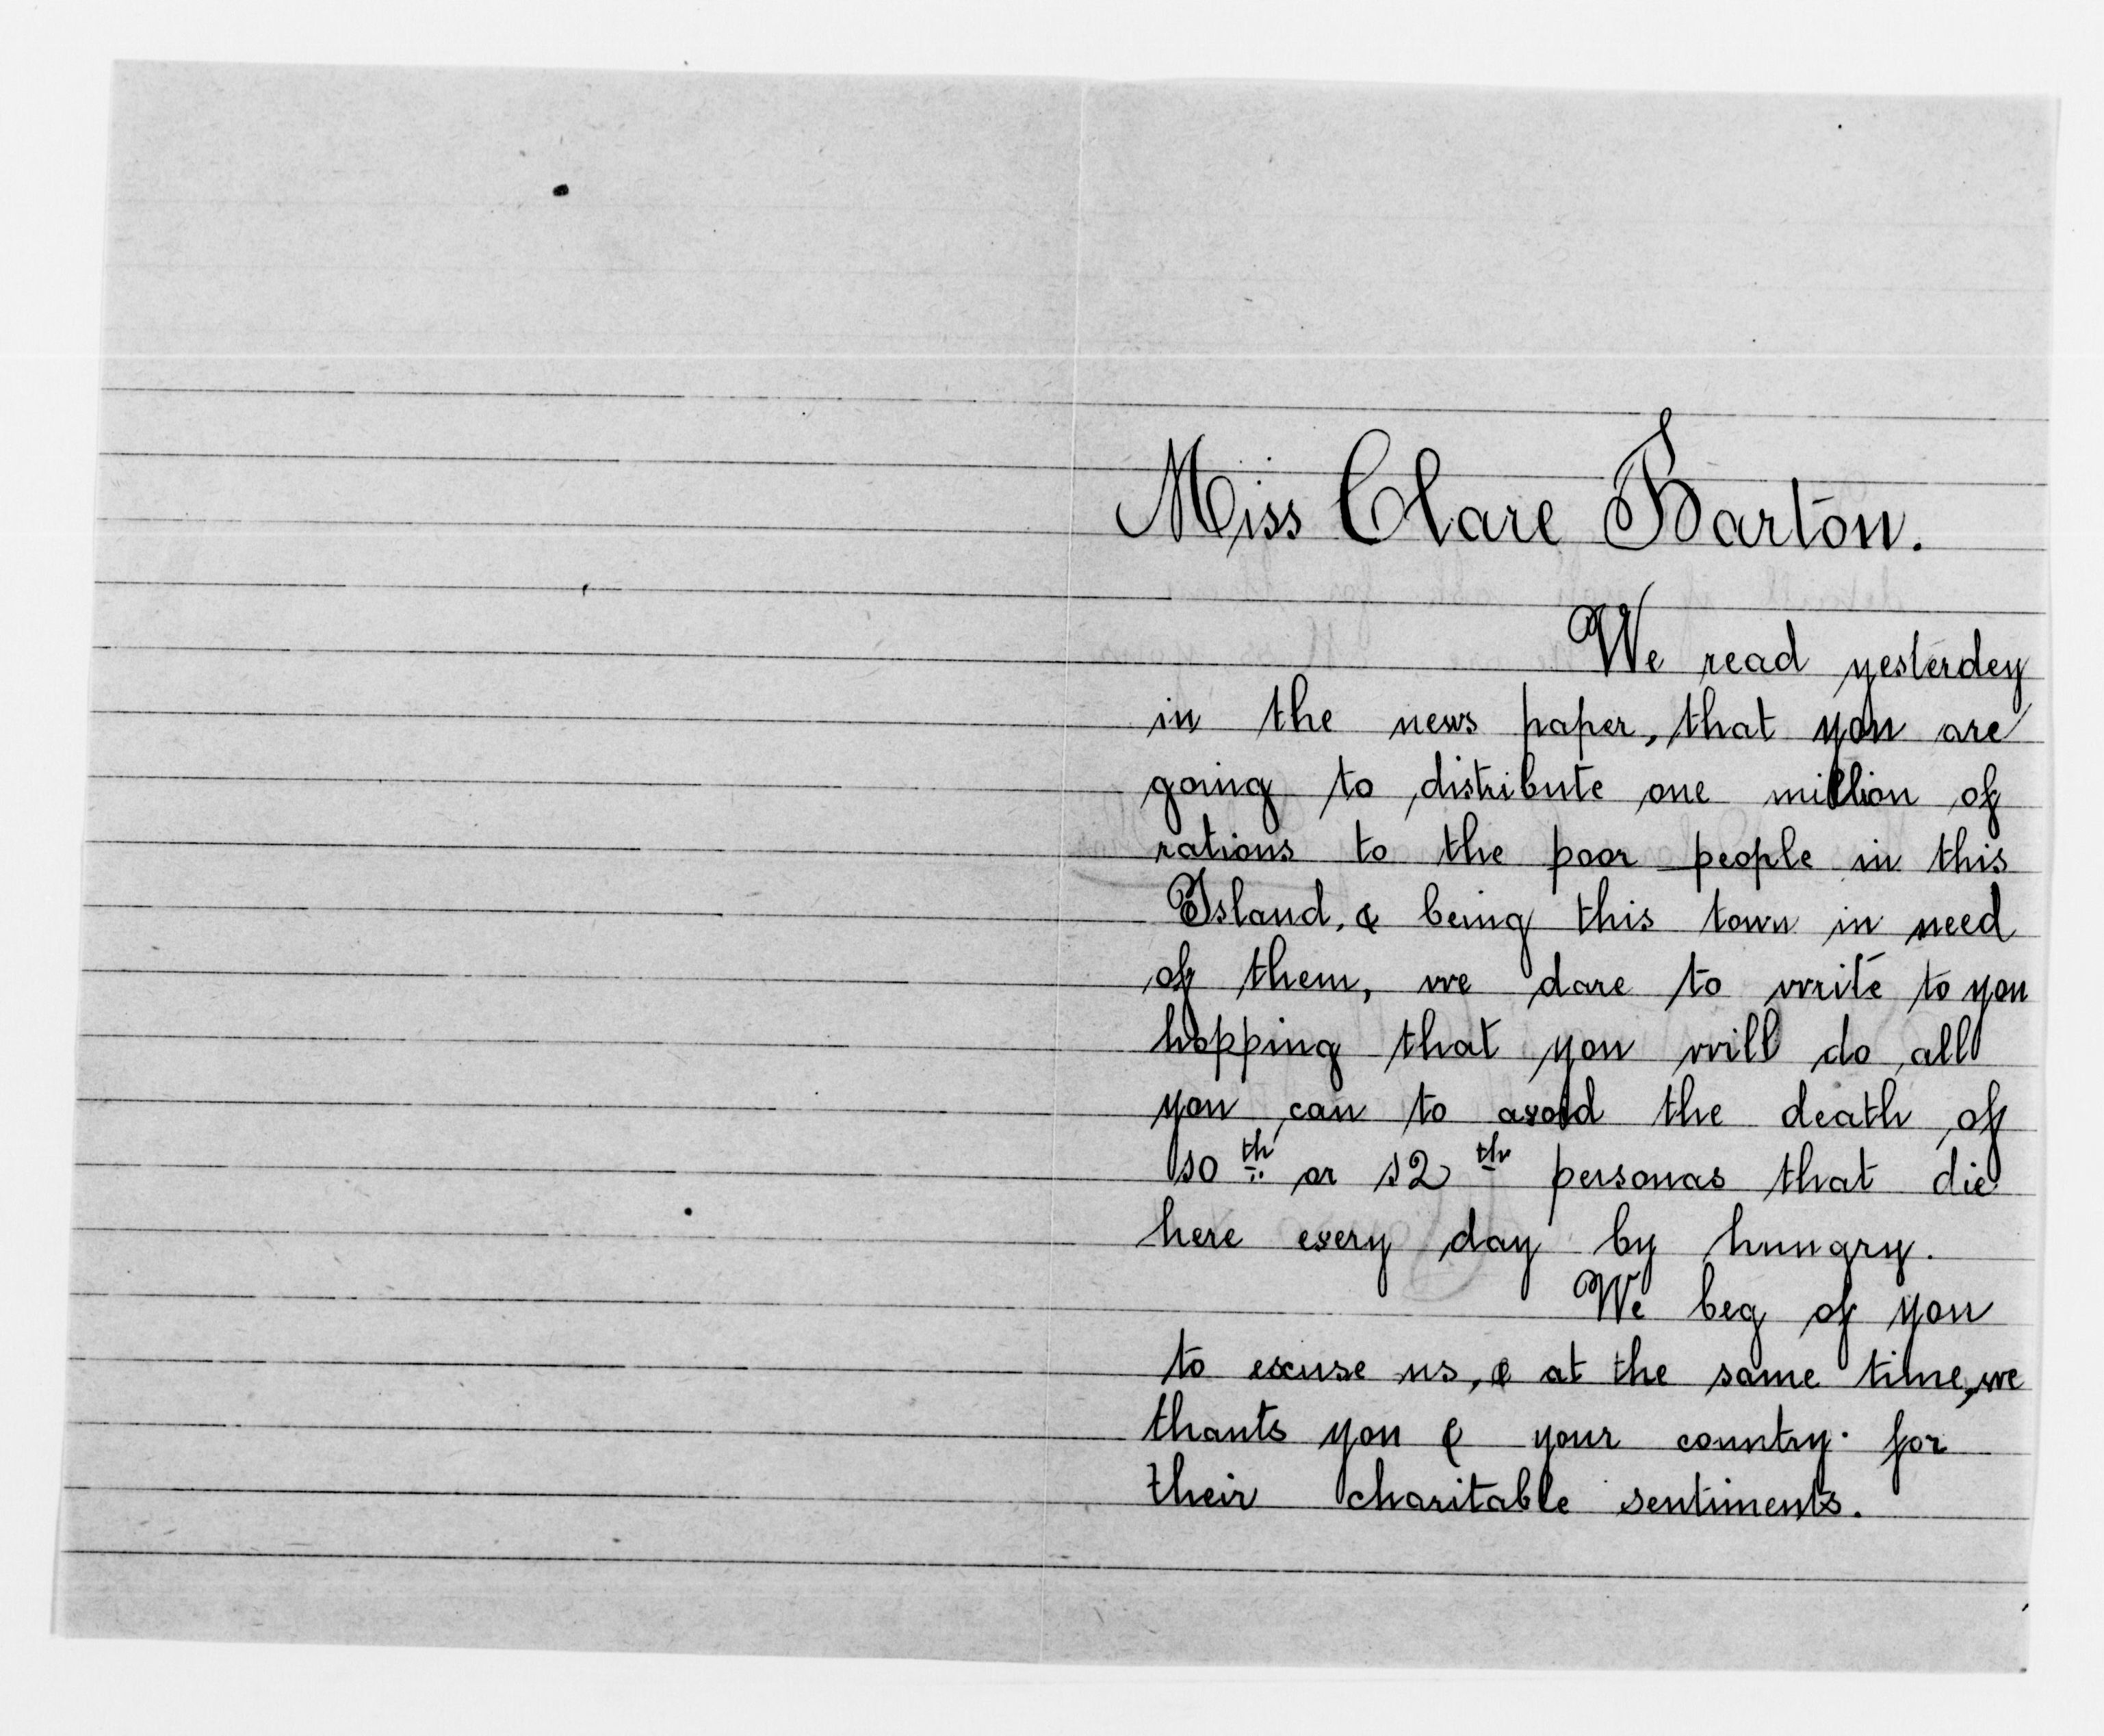 Miss Clare Barton.
We read yesterdey
in the news paper, that you are
going to distribute one million of
rations to the poor people in this
Island, & being this town in need
of them, we dare to write to you
hopping that you will do all
you can to avoid the death of
10th or 12th personas that die
here every day by hungry.
We beg of you
to excuse us, & at the same time, we
thants you & your country for
their charitable sentiments.